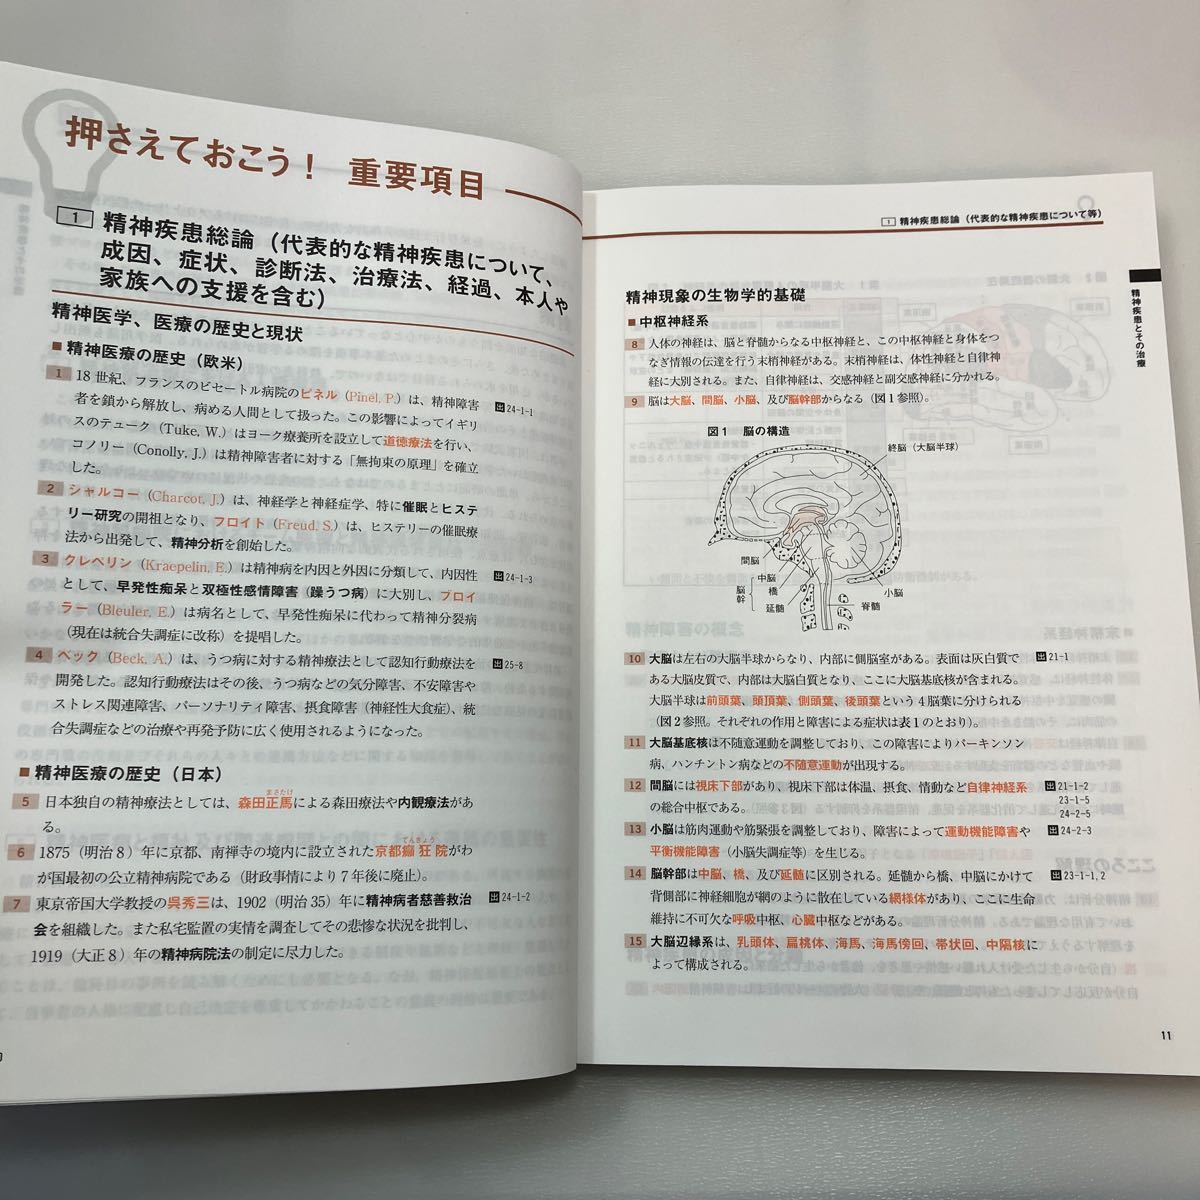 押さえておこう！ 重要項目
1 精神疾患総論（代表的な精神疾患について、
成因、症状、診断法、治療法、経過、本人や
家族への支援を含む）
精神医学、医療の歴史と現状
■ 精神医療の歴史（欧米）
1 18世紀、フランスのビセートル病院のピネル（Pinel, P.）は、精神障害 出24-1-1
者を鎖から解放し、病める人間として扱った。この影響によってイギリ
スのテューク（Tuke, W.）はヨーク療養所を設立して道徳療法を行い、
コノリー（Conolly, J.）は精神障害者に対する「無拘束の原理」を確立
した。
2 シャルコー（Charcot, J.）は、神経学と神経症学、特に催眠とヒステ
リー研究の開祖となり、フロイト（Freud, S.）は、ヒステリーの催眠療
法から出発して、精神分析を創始した。
3 クレペリン（Kraepelin, E.）は精神病を内因と外因に分類して、内因性 出24-1-3
として、早発性痴呆と双極性感情障害（躁うつ病）に大別し、ブロイ
ラー（Bleuler, E.）は病名として、早発性痴呆に代わって精神分裂病
（現在は統合失調症に改称）を提唱した。
4 ベック（Beck, A.）は、うつ病に対する精神療法として認知行動療法を 出25-8
開発した。認知行動療法はその後、うつ病などの気分障害、不安障害や
ストレス関連障害、パーソナリティ障害、摂食障害（神経性大食症）、統
合失調症などの治療や再発予防に広く使用されるようになった。
■ 精神医療の歴史（日本）
まさたけ
5 日本独自の精神療法としては、森田正馬による森田療法や内観療法があ
る。
てんきょう
6 1875（明治8）年に京都、南禅寺の境内に設立された京都癲狂院がわ
が国最初の公立精神病院である（財政事情により7年後に廃止）。
7 東京帝国大学教授の呉秀三は、1902（明治35）年に精神病者慈善救治 出24-1-2
会を組織した。また私宅監置の実情を調査してその悲惨な状況を批判し、
1919（大正8）年の精神病院法の制定に尽力した。
1 精神疾患総論（代表的な精神疾患について等）
精神疾患とその治療
精神現象の生物学的基礎
■ 中枢神経系
8 人体の神経は、脳と脊髄からなる中枢神経と、この中枢神経と身体をつ
なぎ情報の伝達を行う末梢神経がある。末梢神経は、体性神経と自律神
経に大別される。また、自律神経は、交感神経と副交感神経に分かれる。
9 脳は大脳、間脳、小脳、及び脳幹部からなる（図1参照）。
図1 脳の構造
終脳（大脳半球）
間脳
中脳
橋
延髄
脳幹
脊髄
小脳
10 大脳は左右の大脳半球からなり、内部に側脳室がある。表面は灰白質で 出21-1
ある大脳皮質で、内部は大脳白質となり、ここに大脳基底核が含まれる。
大脳半球は前頭葉、頭頂葉、側頭葉、後頭葉という4脳葉に分けられる
（図2参照。それぞれの作用と障害による症状は表1のとおり）。
11 大脳基底核は不随意運動を調整しており、この障害によりパーキンソン
病、ハンチントン病などの不随意運動が出現する。
12 間脳には視床下部があり、視床下部は体温、摂食、情動など自律神経系 出21-1-2
の総合中枢である。 23-1-5
24-2-5
13 小脳は筋肉運動や筋緊張を調整しており、障害によって運動機能障害や 出24-2-3
平衡機能障害（小脳失調症等）を生じる。
14 脳幹部は中脳、橋、及び延髄に区別される。延髄から橋、中脳にかけて 出23-1-1, 2
背側部に神経細胞が網のように散在している網様体があり、ここに生命
維持に不可欠な呼吸中枢、心臓中枢などがある。
15 大脳辺縁系は、乳頭体、扁桃体、海馬、海馬傍回、帯状回、中隔核に
よって構成される。
11